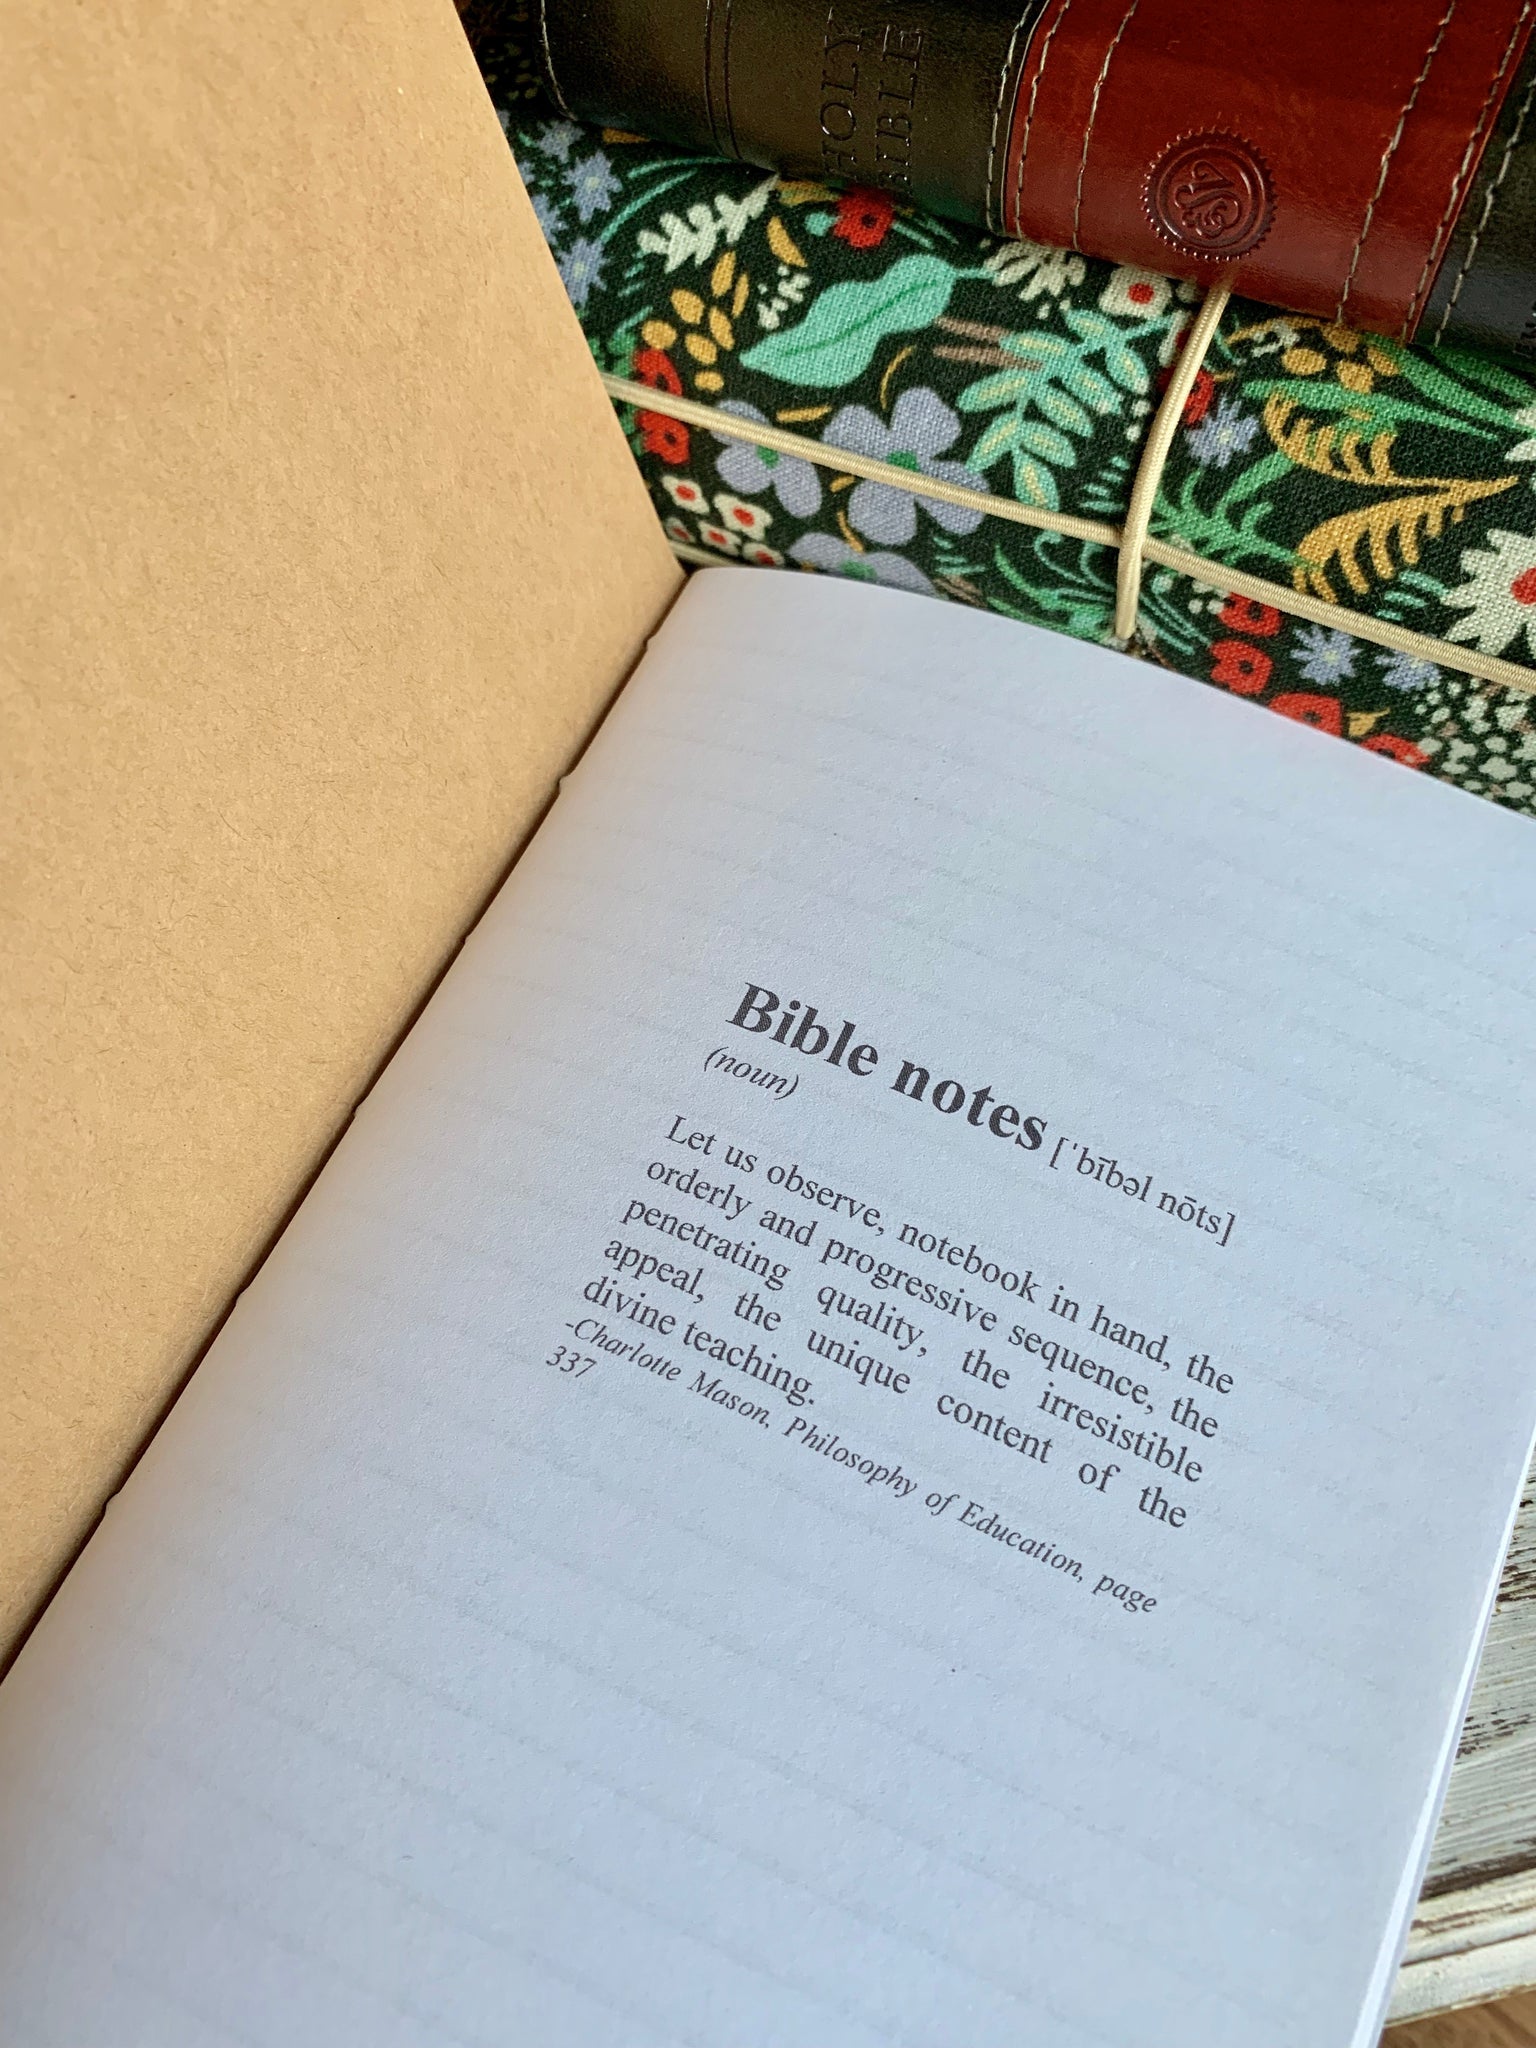 HOLY
BIBLE
Bible notes [ˈbībəl nōts]
(noun)
Let us observe, notebook in hand, the
orderly and progressive sequence, the
penetrating quality, the irresistible
appeal, the unique content of the
divine teaching.
-Charlotte Mason, Philosophy of Education, page
337